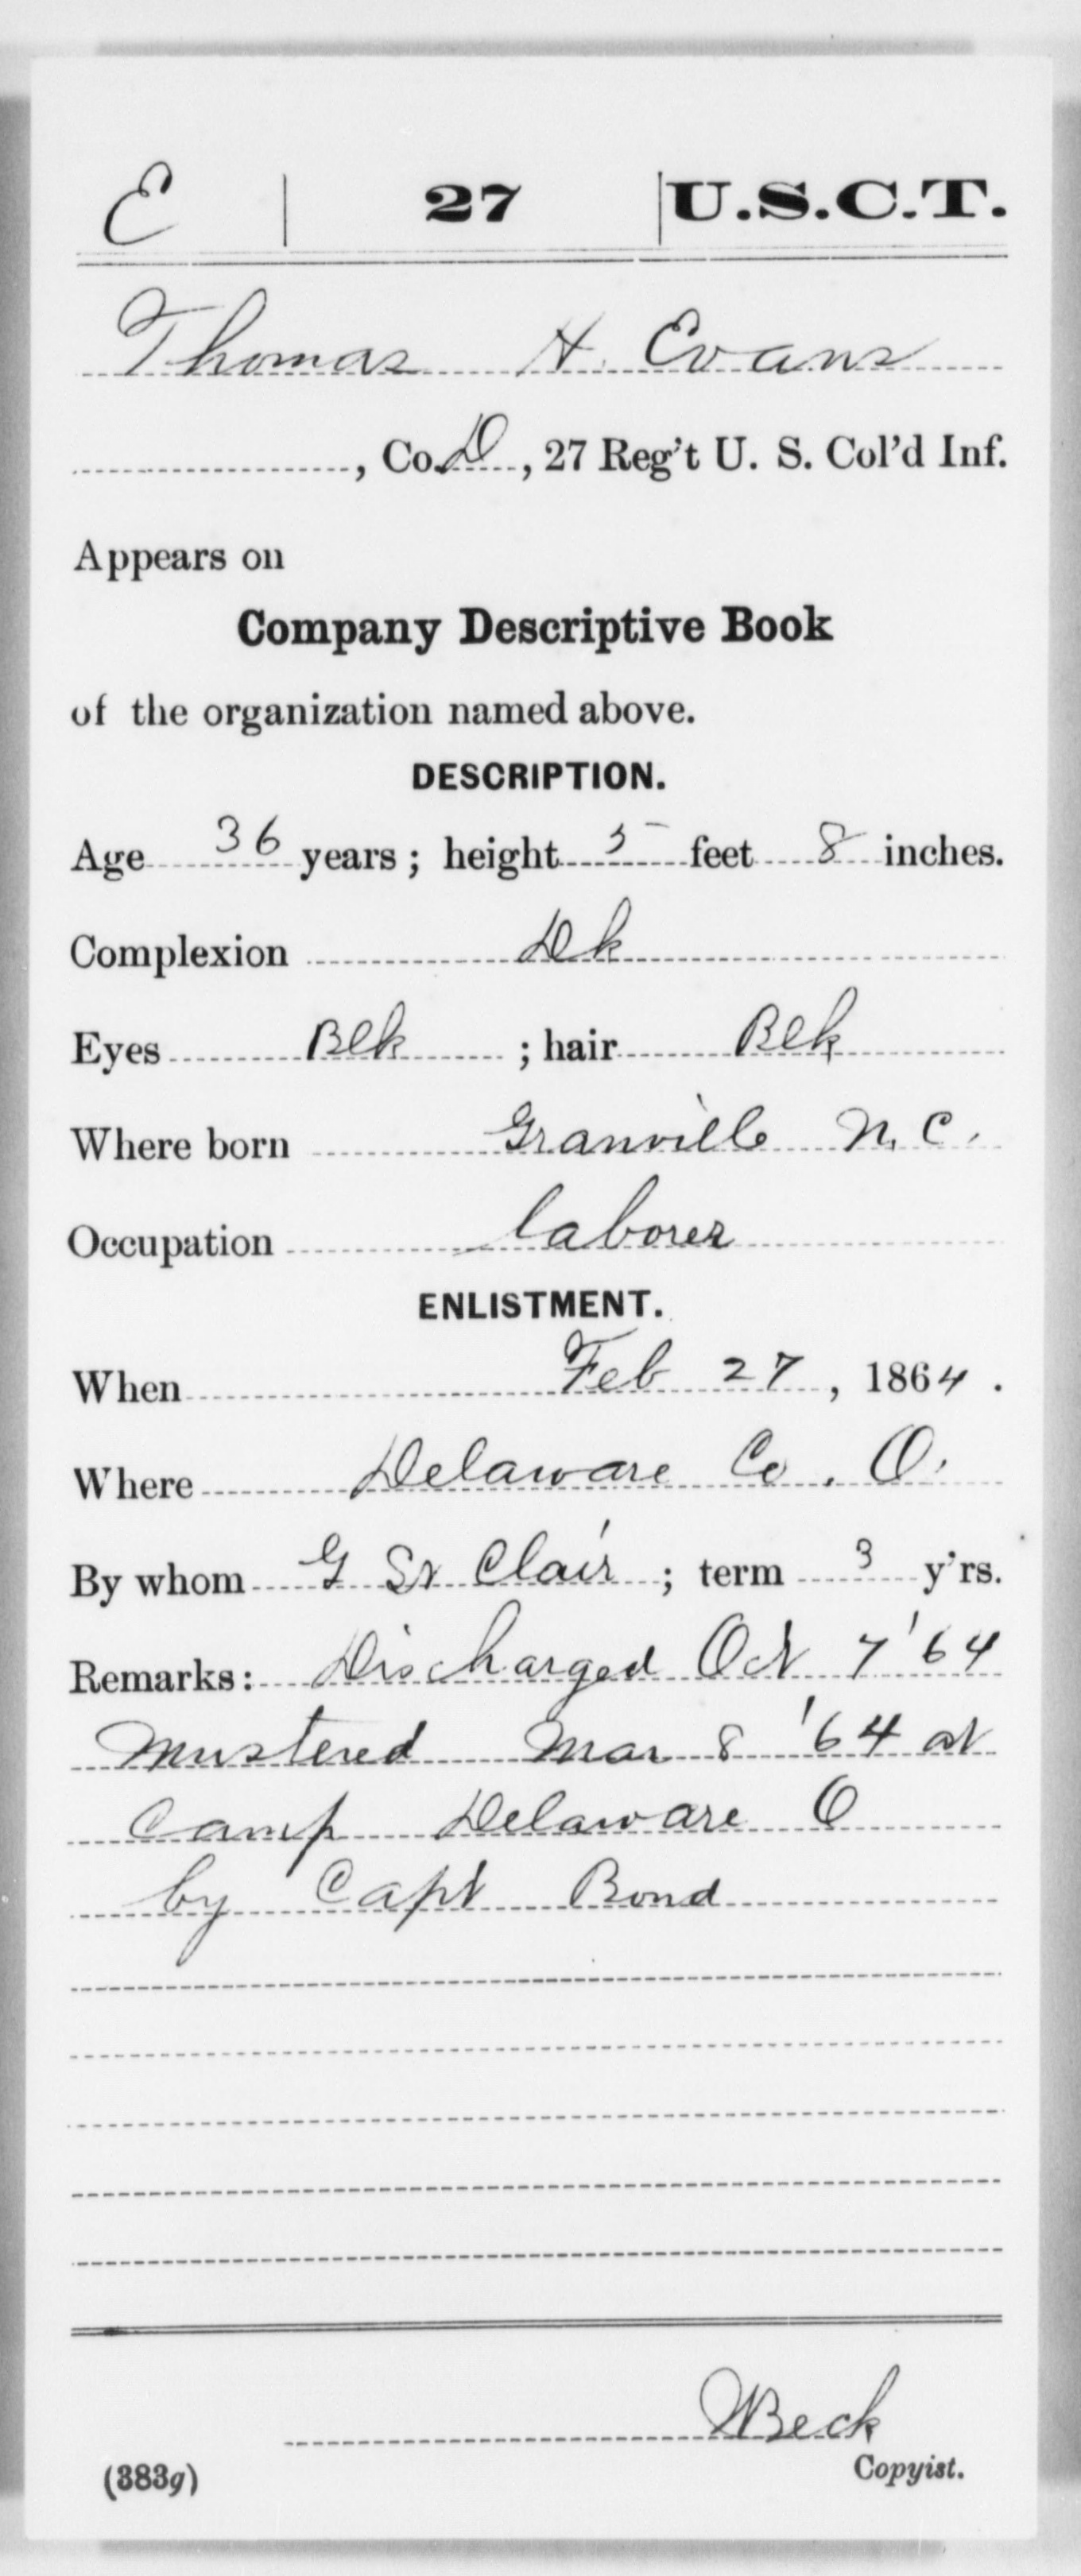 E | 27 | U.S.C.T.
Thomas H. Evans
, Co. D, 27 Reg't U. S. Col'd Inf.
Appears on
Company Descriptive Book
of the organization named above.
DESCRIPTION.
Age 36 years; height 5 feet 8 inches.
Complexion Dk
Eyes Blk; hair Blk
Where born Granville N. C.
Occupation laborer
ENLISTMENT.
When Feb 27, 1864.
Where Delaware Co. O.
By whom G St Clair; term 3 y'rs.
Remarks: Discharged Oct 7 '64
Mustered Mar 8 '64 at
Camp Delaware O
by Capt Bond
WBeck
(383g) Copyist.